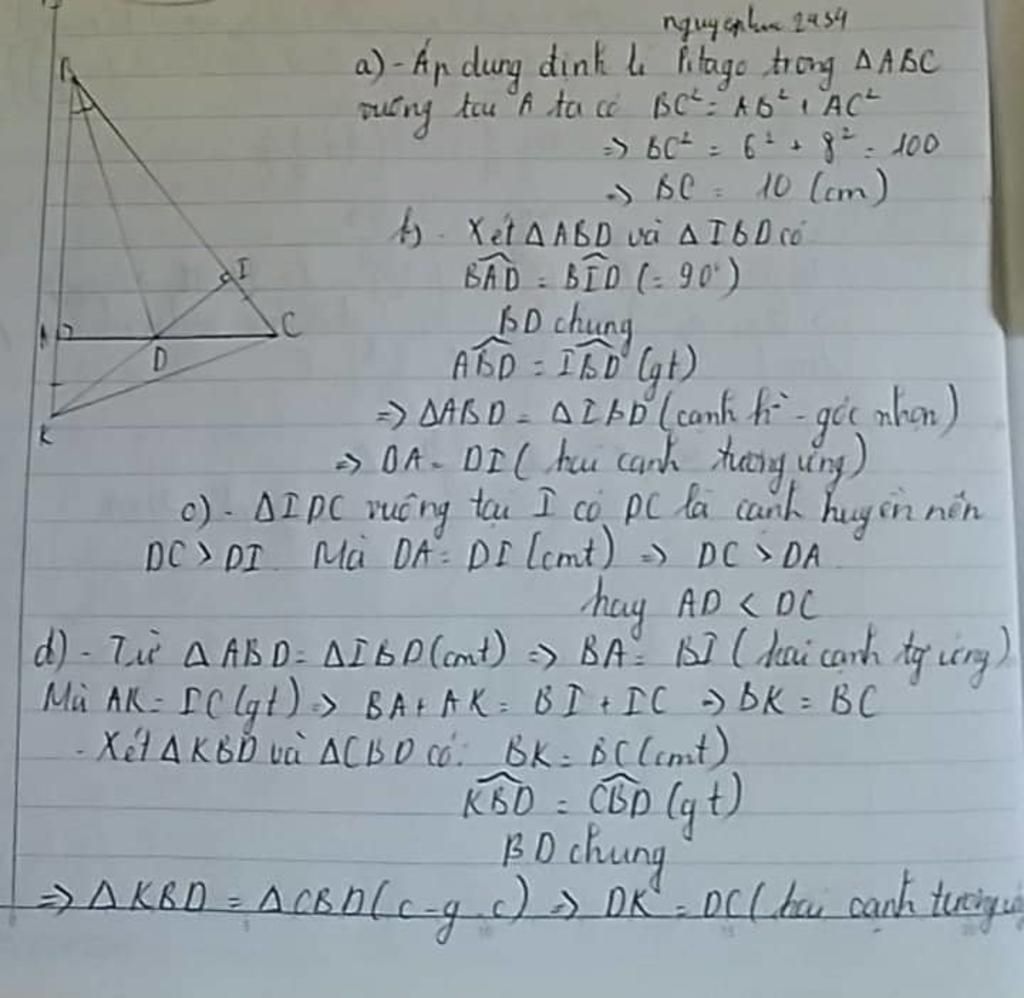 nguyenhuu2434
a) - Áp dung dinh lí Pitago trong ΔABC
vuông tại A ta có BC² = AB² + AC²
=> BC² = 6² + 8² = 100
=> BC = 10 (cm)
b) - Xét ΔABD và ΔIBD có
B
I
C
A
D
K
\widehat{BAD} = \widehat{BID} (= 90°)
BD chung
\widehat{ABD} = \widehat{IBD} (gt)
=> ΔABD = ΔIBD (cạnh h² - góc nhọn)
=> DA = DI (hai cạnh tương ứng)
c) - ΔIDC vuông tại I có DC là cạnh huyền nên
DC > DI. Mà DA = DI (cmt) => DC > DA.
hay AD < DC
d) - Từ ΔABD = ΔIBD (cmt) => BA = BI (hai cạnh tg ứng)
Mà AK = IC (gt) => BA + AK = BI + IC => BK = BC
- Xét ΔKBD và ΔCBD có: BK = BC (cmt)
\widehat{KBD} = \widehat{CBD} (gt)
BD chung
=> ΔKBD = ΔCBD (c-g-c) => DK = DC (hai cạnh tương